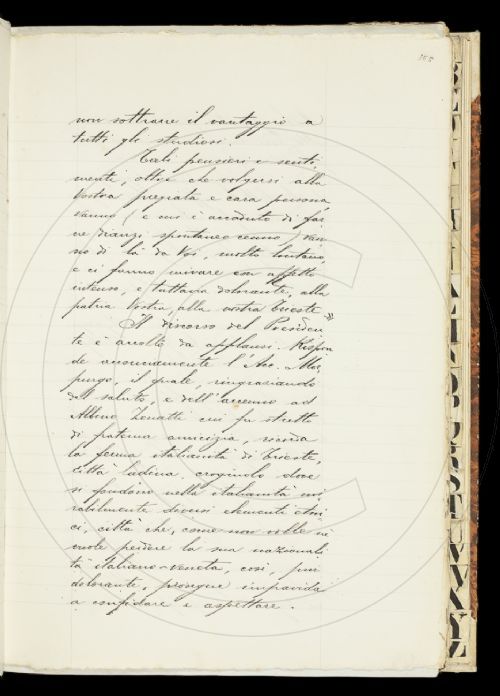 155
non sottrarre il vantaggio a
tutti gli studiosi.
Tali pensieri e senti
menti, oltre che volgersi alla
Vostra pregiata e cara persona,
vanno (e cui è accaduto di far
ne dianzi spontaneo cenno) van
no di là da Voi, molto lontano,
e ci fanno mirare con affetto
intenso, e tuttavia dolorante, alla
patria Vostra, alla nostra Trieste."
Il discorso del Presiden
te è accolto da applausi. Rispon
de nuovamente l'Avv. Mor
purgo, il quale, ringraziando
del saluto, e dell'accenno ad
Albino Zenatti cui fu stretto
di fraterna amicizia, ricorda
la ferma italianità di Trieste,
città ladina, crogiuolo dove
si fondono nella italianità mi
rabilmente diversi elementi etni
ci, città che, come non volle nè
vuole perdere la sua nazionali
tà italiano-veneta, così, pur
dolorante, prosegue impavida
a confidare e aspettare.